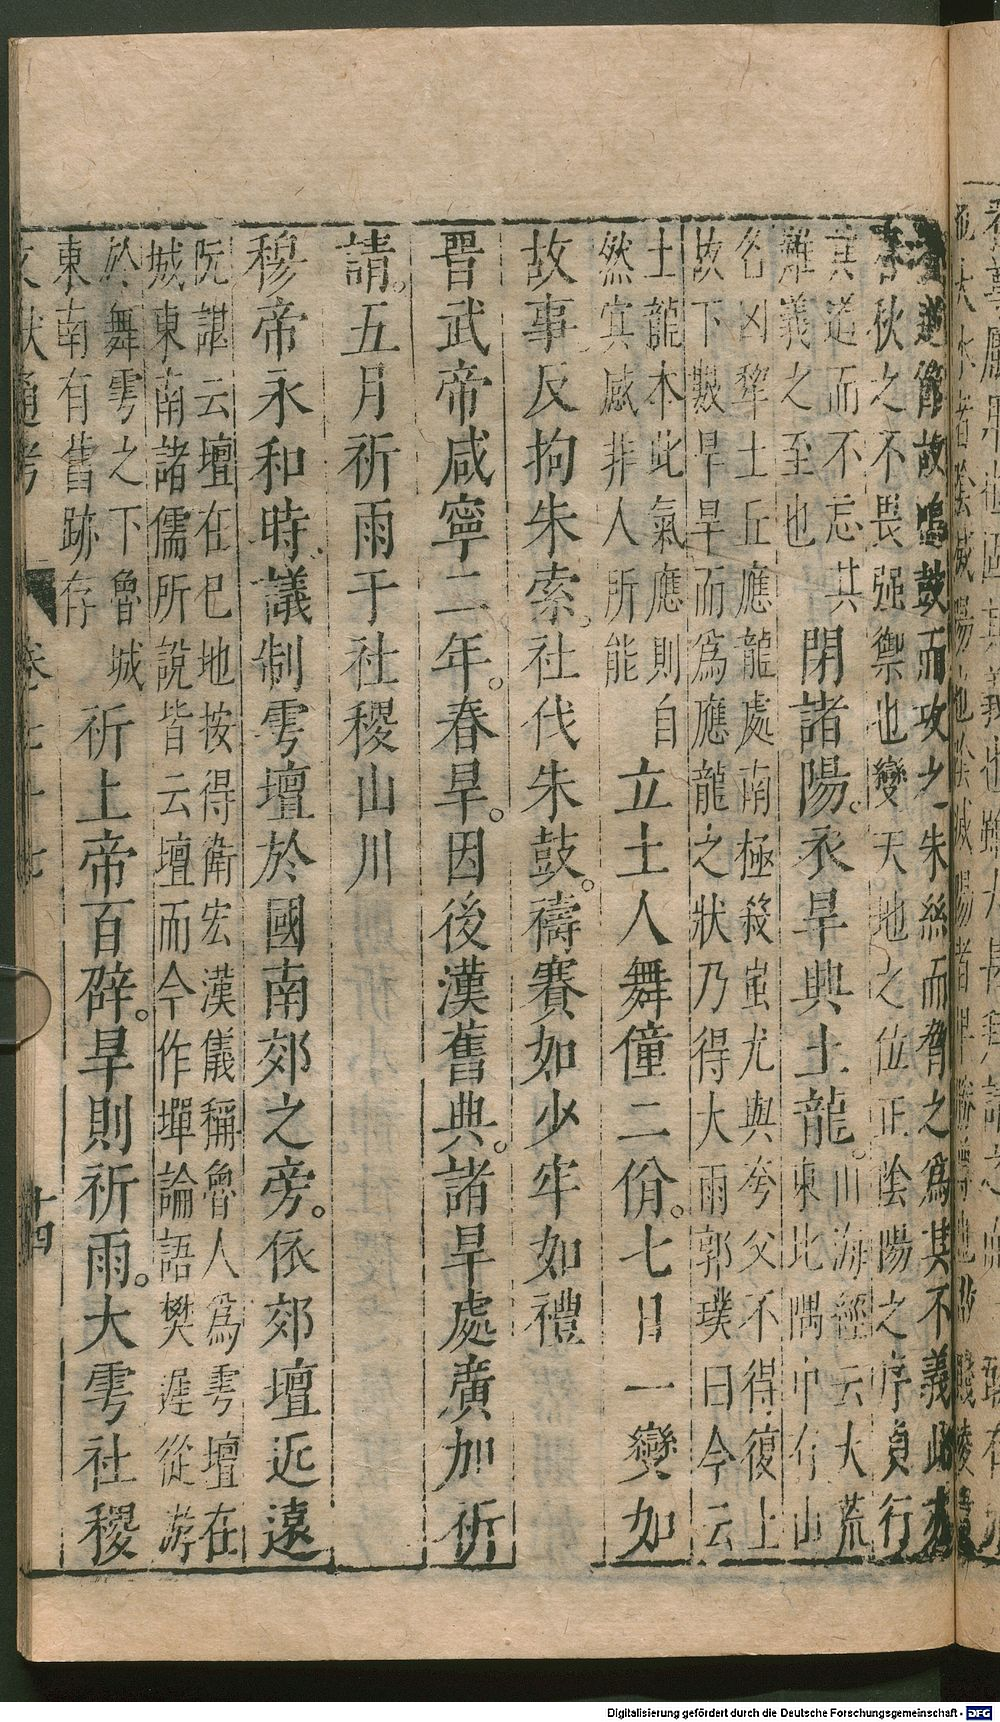 逆節故鳴鼓而攻之朱絲而脅之為其不義此亦
春秋之不畏强禦也變天地之位正陰陽之序貞行
其道而不忘其
難義之至也
閉諸陽。衣旱興土龍。
山海經云大荒
東北隅中有山
名凶犂土丘應龍處南極殺蚩尤與夸父不得復上
故下數旱旱而為應龍之狀乃得大雨郭璞曰今云
土龍本此氣應則自
然寞感非人所能
立土人舞僮二佾。七日一變如
故事反拘朱索。社伐朱鼓。禱賽如少牢如禮
晉武帝咸寧二年。春旱。因後漢舊典。諸旱處廣加祈
請。五月祈雨于社稷山川
穆帝永和時議制雩壇於國南郊之旁。依郊壇近遠
阮諶云壇在巳地按得衛宏漢儀稱魯人為雩壇在
城東南諸儒所說皆云壇而今作墠論語樊遲從游
於舞雩之下魯城
東南有舊跡存
祈上帝百辟。旱則祈雨。大雩社稷
文獻通考 卷七十七 十四
Digitalisierung gefördert durch die Deutsche Forschungsgemeinschaft - DFG